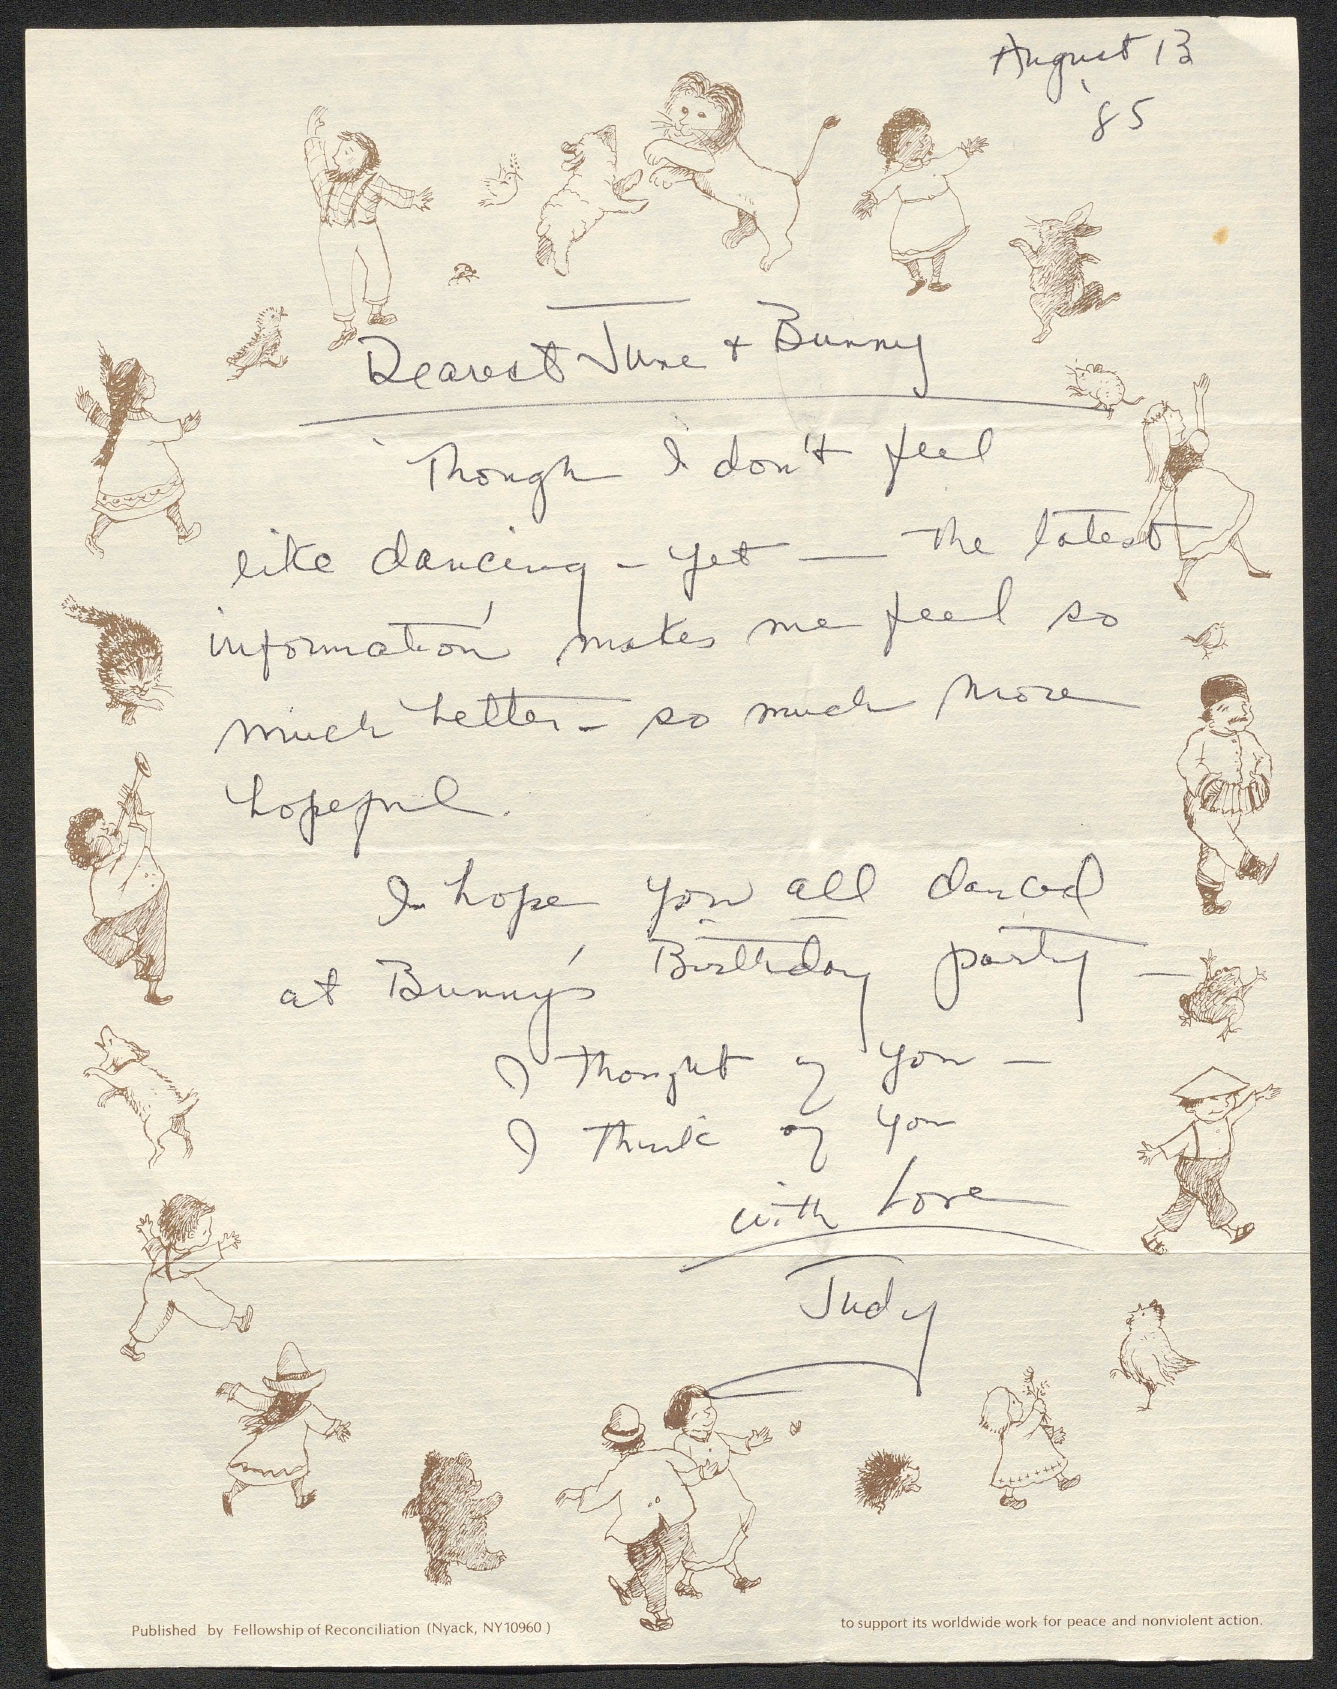 August 13
'85
Dearest June + Bunny
Though I don't feel
like dancing - yet — the latest
information makes me feel so
much better - so much more
hopeful.
I hope you all danced
at Bunny's Birthday party —
I thought of you —
I think of you
with Love
Judy
Published by Fellowship of Reconciliation (Nyack, NY 10960) to support its worldwide work for peace and nonviolent action.